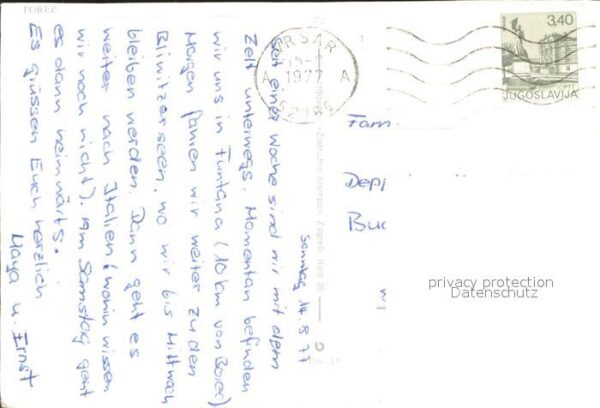 POREČ
Sonntag 14.8.77
Seit einer Woche sind wir mit dem
Zelt unterwegs. Momentan befinden
wir uns in Funtana (10 km von Poreč)
Morgen fahren wir weiter zu den
Plivitzerseen, wo wir bis Mittwoch
bleiben werden. Dann geht es
weiter nach Italien (wohin wissen
wir noch nicht). Am Samstag geht
es dann heimwärts.
Es grüssen Euch herzlich
Maya u. Ernst
VRSAR
1977
A A
52450
3,40
JUGOSLAVIJA
Fam.
Buc
privacy protection
Datenschutz